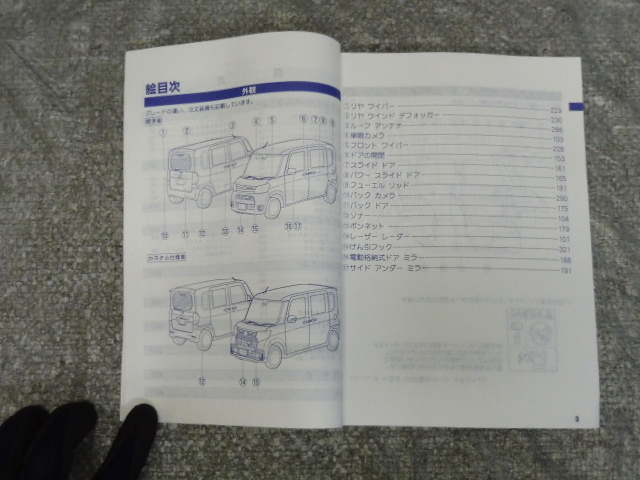 絵目次
外観
グレードの違い、注文装備も記載しています。
標準車
① ② ③ ④ ⑤ ⑥ ⑦ ⑧ ⑨
⑩ ⑪ ⑫ ⑬ ⑭ ⑮ ⑯ ⑰
カスタム仕様車
⑫ ⑭ ⑮
①リヤ ワイパー 229
②リヤ ウインド デフォッガー 230
③ルーフ アンテナ 286
④単眼カメラ 103
⑤フロント ワイパー 228
⑥ドアの開閉 153
⑦スライド ドア 161
⑧パワー スライド ドア 165
⑨フューエル リッド 181
⑩バック カメラ 290
⑪バック ドア 175
⑫ソナー 104
⑬ボンネット 179
⑭レーザー レーダー 101
⑮けん引フック 321
⑯電動格納式ドア ミラー 188
⑰サイド アンダー ミラー 191
3